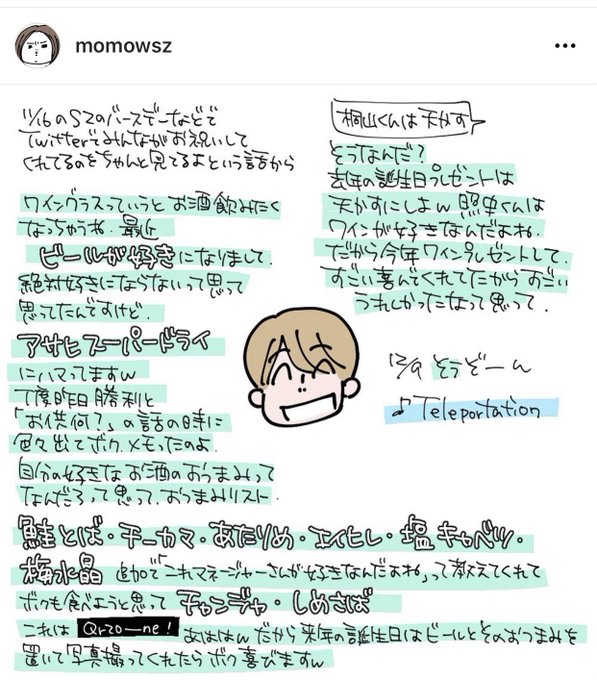 momowsz
11/16のSZのバースデーなどで
Twitterでみんながお祝いして
くれてるのをちゃんと見てるよという話から
ワイングラスっていうとお酒飲みたく
なっちゃうね 最近
ビールが好きになりまして.
絶対好きにならないって思って
思ってたんですけど.
アサヒスーパードライ
にハマってますw
丁度昨日勝利と
「お供何?」の話の時に
色々出てボク、メモったのよ
自分の好きなお酒のおつまみって
なんだろって思って、おつまみリスト.
鮭とば・チーカマ・あたりめ・エイヒレ・塩キャベツ・
梅水晶 追加で「これマネージャーさんが好きなんだよね」って教えてくれて
ボクも食べようと思って チャンジャ・しめさば
これは Qrzo—ne! あはははん だから来年の誕生日はビールとそのおつまみを
置いて写真撮ってくれたらボク喜びますw
桐山くんは天かす
そうなんだ?
去年の誕生日プレゼントは
天かすにしよw 照史くんは
ワインが好きなんだよね.
だから今年ワインプレゼントして.
すごい喜んでくれてたからすごい
うれしかったなって思って.
12/9 そうぞーん
♪Teleportation